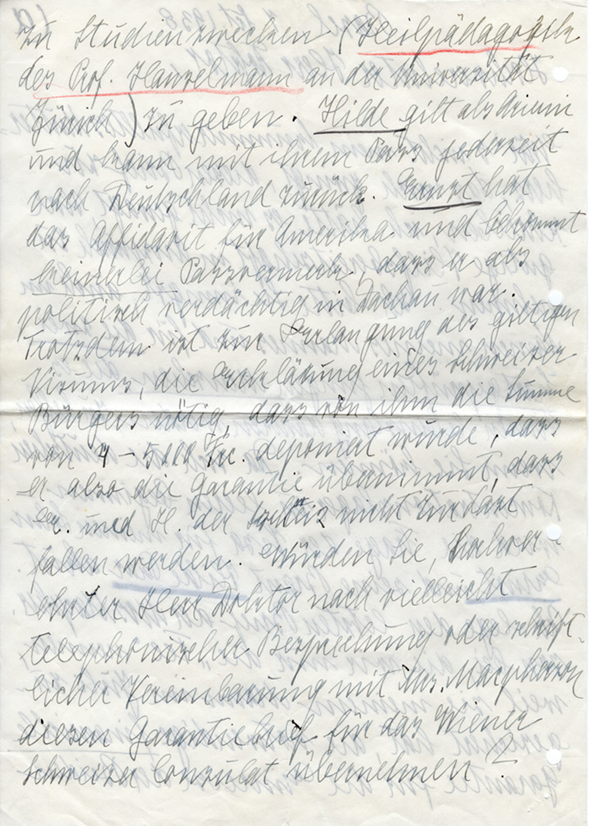 zu Studienzwecken (Heilpädagogik
des Prof. Hanselmann an der Universität
Zürich) zu geben. Hilde gilt als
und kann mit ihrem Pass jederzeit
nach Deutschland zurück. Ernst hat
das Affidavit für Amerika und bekommt
keinerlei Passvermerk, dass er als
politisch verdächtig in Dachau war.
Trotzdem ist zur Erlangung des giltigen
Visums, die Erklärung eines Schweizer
Bürgers nötig, dass von ihm die Summe
von 4 – 5000 Frc. deponiert wurde, dass
er also die Garantie übernimmt, dass
E. und H. der Schweiz nicht zur Last
fallen werden. Würden Sie, hochver-
ehrter Herr Doktor nach vielleicht
telephonischer Besprechung oder schrift-
licher Vereinbarung mit Mrs. Macpherson
diesen Garantiebrief für das Wiener
Schweizer Consulat übernehmen?